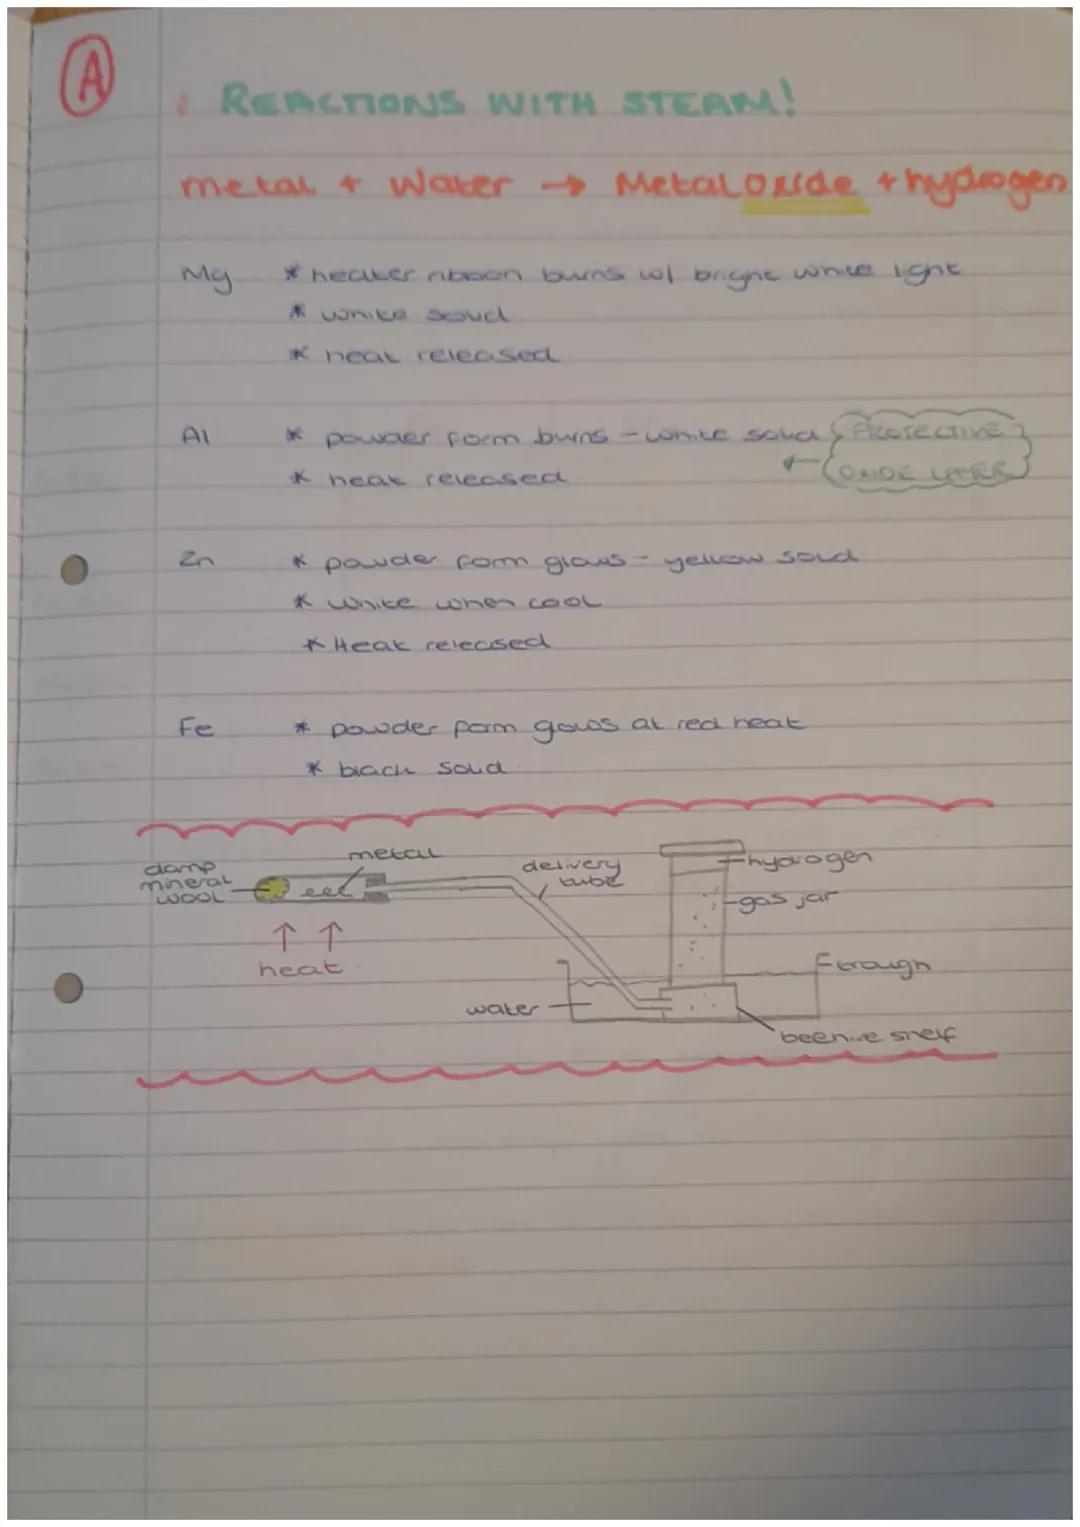 A
REACTIONS WITH STEAM!
metal + Water → Metal Oxide + hydrogen
Mg * heater ribbon burns w/ bright white light
* white solid
* heat released
Al * powder form burns - white solid
PROTECTIVE
OXIDE LAYER
* heat released
Zn * powder form glows - yellow solid
* white when cool
* Heat released
Fe * powder form glows at red heat
* black solid
damp
mineral
wool
metal
delivery
tube
hydrogen
gas jar
heat
trough
water
beehive shelf